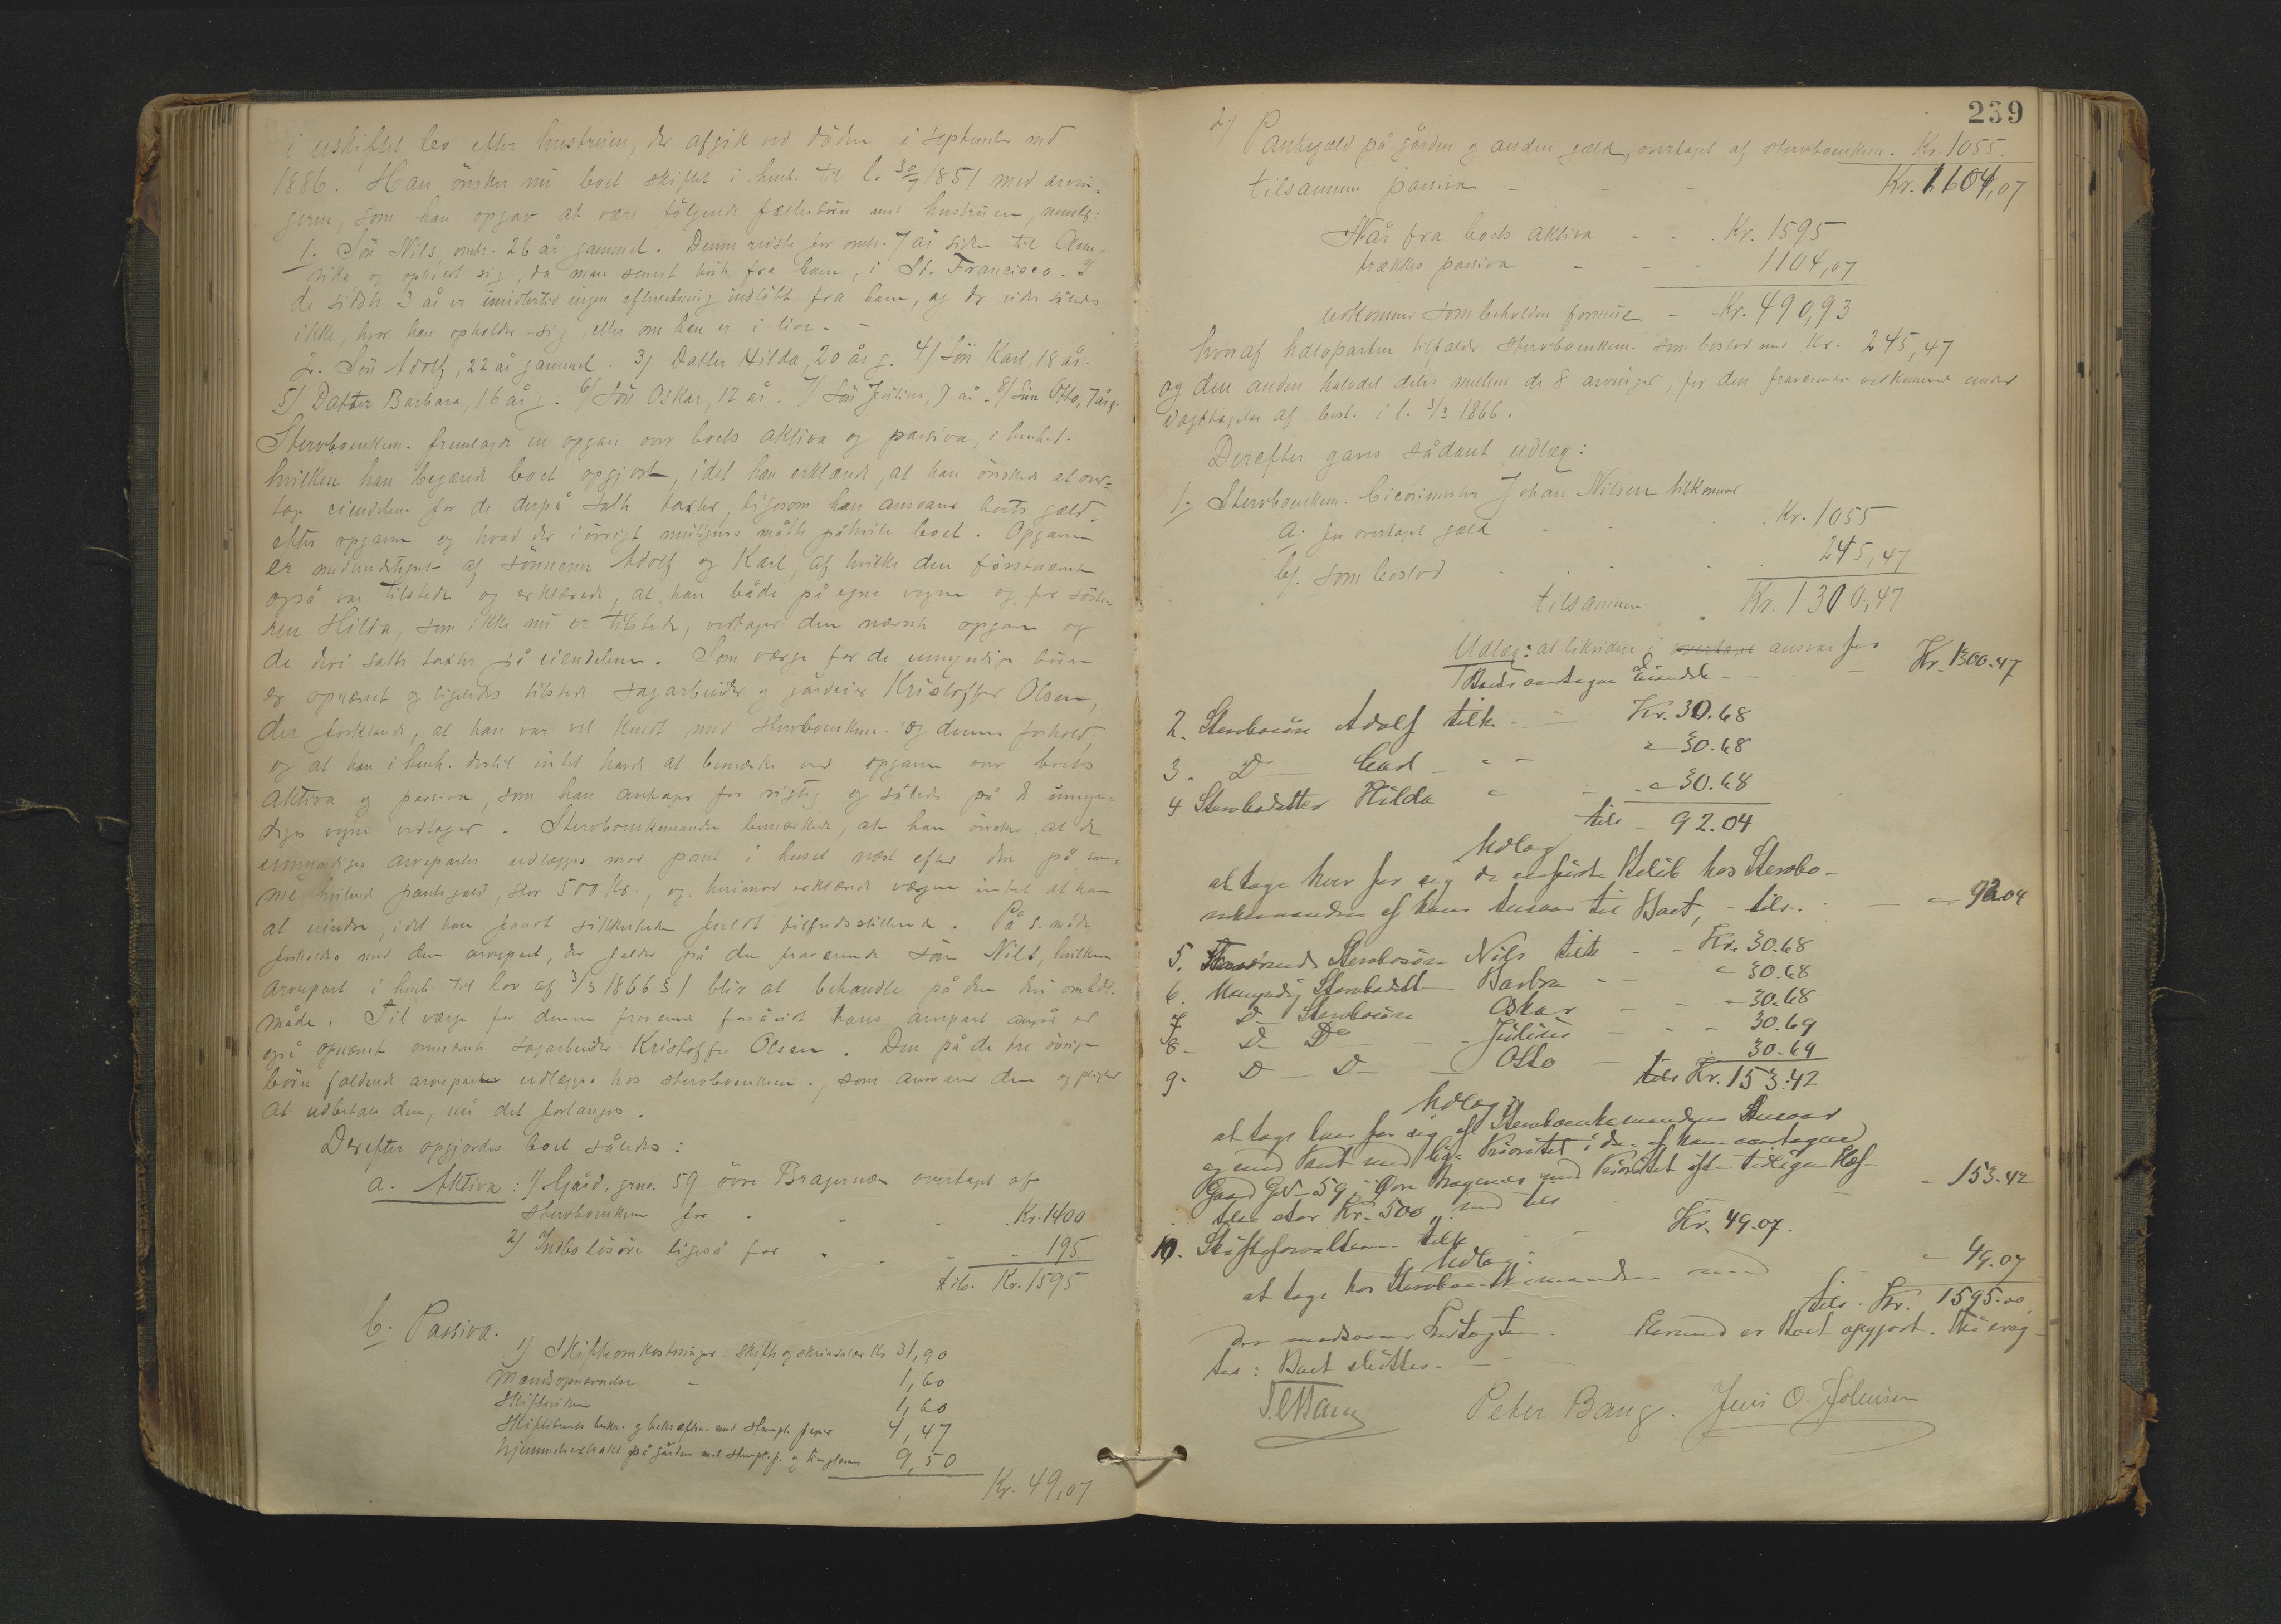 i uskiftet bo efter hustruen, der afgik ved döden i september md
1886. Han önsker nu boet skiftet i henh. til l. 30/7 1851 med arvin-
gerne, som han opgav at være følgende fællesbörn med hustruen, nemlig:
1. Sön Nils, omtr. 26 år gammel. Denne reiste for omtr. 7 år siden til Ame-
rika og opholdt sig, da man senest hörte fra ham, i St. Francisco. I
de sidste 3 år er imidlertid ingen efterretning indlöbt fra ham, og der vides således
ikke, hvor han opholder sig eller om han er i live. -
2. Sön Adolf, 22 år gammel. 3) Datter Hilda, 20 år g. 4) Sön Karl, 18 år.
5) Datter Barbara, 16 år g. 6) Sön Oskar, 12 år. 7) Sön Julius, 9 år. 8) Sön Otto, 7 år g.
Stervboenkem. fremlagde en opgave over boets aktiva og passiva, i henh. t.
hvilken han begjærede boet opgjort, idet han erklærede, at han önsked at over-
tage eiendelene for de derpå satte taxter, ligesom han ansvarer boets gæld
efter opgaven og hvad der iövrigt muligens måtte påhvile boet. Opgaven
er medundertegnet af sönnerne Adolf og Karl, af hvilke den förstnævnte
også var tilstede og erklærede, at han både på egne vegne og for söste-
ren Hilda, som ikke nu er tilstede, vedtager den nævnte opgave og
de deri satte taxter på eiendelene. Som værge for de umyndige börn
er opnævnt og ligeledes tilstede sagarbeider og gårdeier Kristoffer Olsen,
der forklarede, at han var vel kendt med stervboenkem. og dennes forhold,
og at han i henh. dertil intet havde at bemærke ved opgaven over boets
aktiva og passiva, som han antager for rigtig og således på de umyn-
diges vegne vedtager. Stervboenkemanden bemærkede, at han önsker at de
umyndiges arveparter udlægges mod pant i huset næst efter den på sam-
me hvilende pantegæld, stor 500 Kr., og herimod erklærede værgen intet at have
at erindre, idet han fandt sikkerheden fuldt tilfredsstillende. På s. måde
forholdes med den arvepart, der falder på den fraværende sön Nils, hvilken
arvepart i henh. til lov af 3/3 1866 § 1 blir at behandle på den deri omhdl.
måde. Til værge for denne fraværende forsåvidt hans arvepart angår er
også opnævnt omnævnte sagarbeider Kristoffer Olsen. Den på de tre övrige
börn faldende arvepart udlægges hos stervboenkem., som ansvarer den og pligter
at udbetale den, når det forlanges.
Derefter opgjordes boet således:
a. Aktiva: 1) Gård, grno. 59 övre Bragernes overtaget af
stervboenkem for - - - Kr. 1400
2) Indbo lösöre ligeså for - - - 195
tils. Kr. 1595
b. Passiva.
1) Skifteomkostninger: skifte og skrivsalær Kr 31,90
Mænds opnævnelse - 1,60
Skiftevidner 1,60
Skiftebrevs beskr. og bekræftn. med stempl. papir 4,47
hjemmelsextrakt på gården med stempl. p. og tinglæsn. 9,50
Kr. 49,07
239
2.) Pantegæld på gården og anden gæld, overtaget af stervboenkem. Kr. 1055.
tilsammen passiva - - - Kr. 1604,07
Når fra boets aktiva - - Kr. 1595
trækkes passiva - - - 1104,07
udkommer som beholden formue - Kr. 490,93
hvoraf halvparten tilfalder stervboenkem. som boslod med Kr. 245,47
og den anden halvdel deles mellem de 8 arvinger, for den fraværendes vedkommende under
iagttagelse af best. i l. 3/3 1866.
Derefter gaves sådant udlæg:
1. Stervboenkem. Johan Nilsen tilkommer
a. for overtaget gæld - - Kr. 1055
b. som boslod - - - 245,47
tilsammen Kr. 1300,47
Udlæg: at likvidere i ansvar for
Boets overtagne Eiendele - - Kr. 1300.47
2. Stervbosön Adolf tilk. - - Kr. 30.68
3. D - Carl - - - 30.68
4 Stervbodatter Hilda - - 30.68
tils - 92.04
Udlæg
at tage hver for sig de anførte Beløb hos Stervbo-
enkemanden af hans Ansvar til Boet, - tils. - 92.04
5. Fraværende Stervbosön Nils tilk - - Kr. 30.68
6. Umyndig Stervbodatt Barbra - - 30.68
7 D - Stervbosön Oskar - - 30.68
8 - D - Do - Julius - - 30.69
9. D - D - Otto - 30.69
tils Kr. 153.42
Udlæg:
at tage hver for sig af Stervboenkemandens Ansvar
og med Pant med lige Prioritet i den af ham overtagne
Gaard GN 59 i Øvre Bragernes med Prioritet efter tidligere Hef-
telse stor Kr. 500 „ med tils - - 153.42
10. Skifteforvalteren tilk - - Kr. 49.07.
Udlæg:
at tage hos Stervboenkemanden med - 49.07
tils. Kr. 1595.00
der modsvarer Indtægten. Hermed er Boet opgjort. Thi erag-
tes: Boet sluttes. -
Peter Bang. Jens O. Johnsen